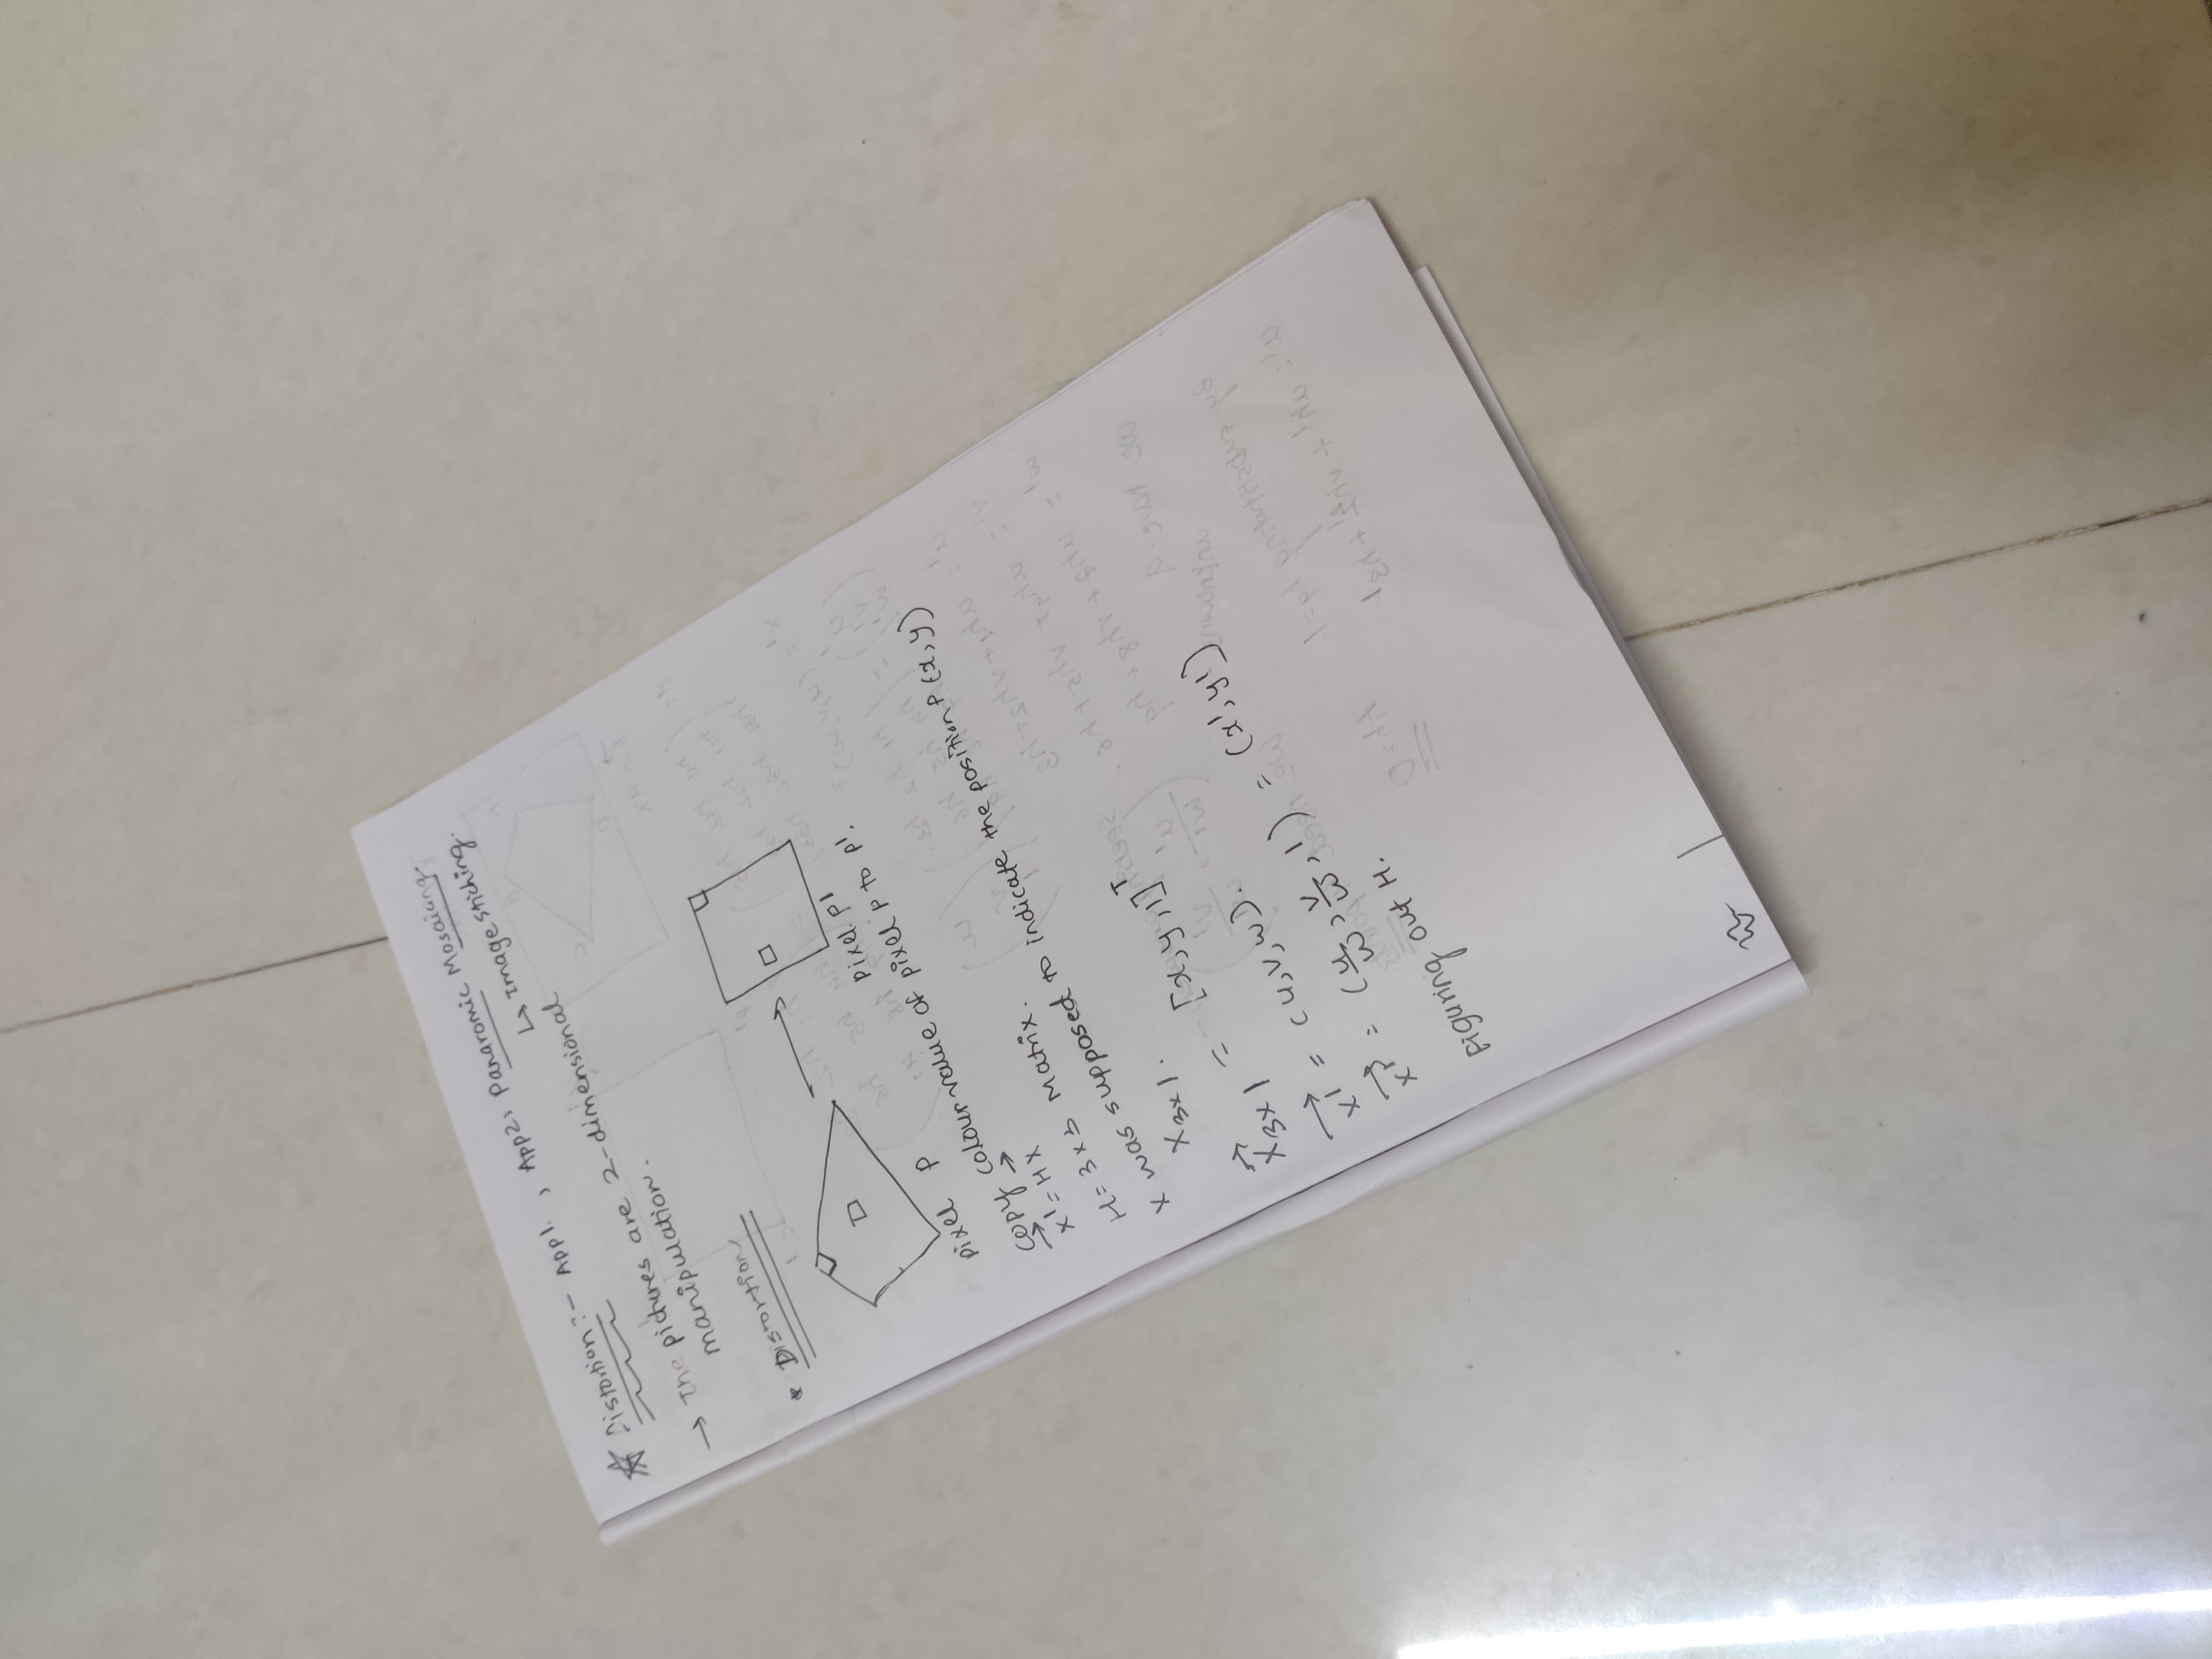 Distortion :- App1. , App2, Panaromic Mosaiang.
↳ Image stiching.
→ The pictures are 2-dimensional
manipulation.
• Distortion
pixel P
pixel. P'
copy colour value of pixel P to P'.
x' = HX
H = 3x3 Matrix.
X was supposed to indicate the position P (x, y)
X3x1.
X3x1 = [x, y, 1]T
x' = (u, v, w).
x' = (u/w, v/w, 1) = (x', y')
Figuring out H.